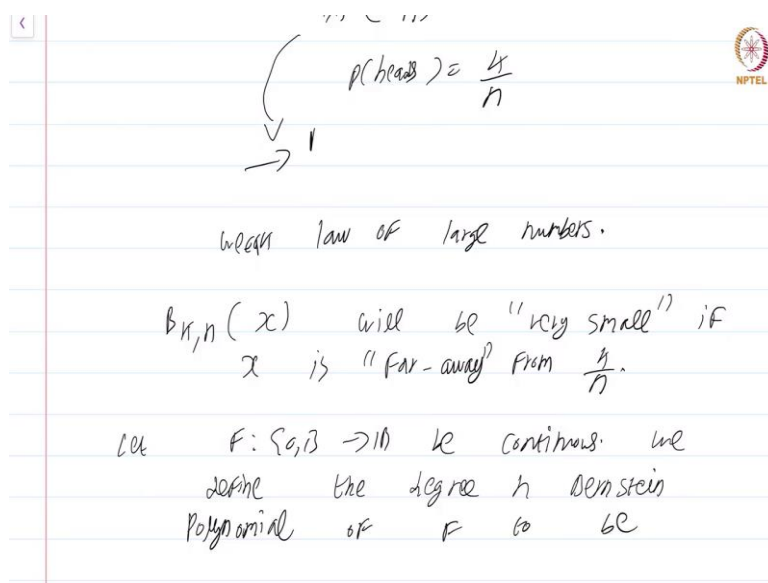 P(heads) = k/n
NPTEL
→ 1
weak law of large numbers.
B_{k,n}(x) will be "very small" if
x is "far-away" from k/n.
Let F: [0,1] → ℝ be continuous. We
define the degree n Bernstein
Polynomial of F to be